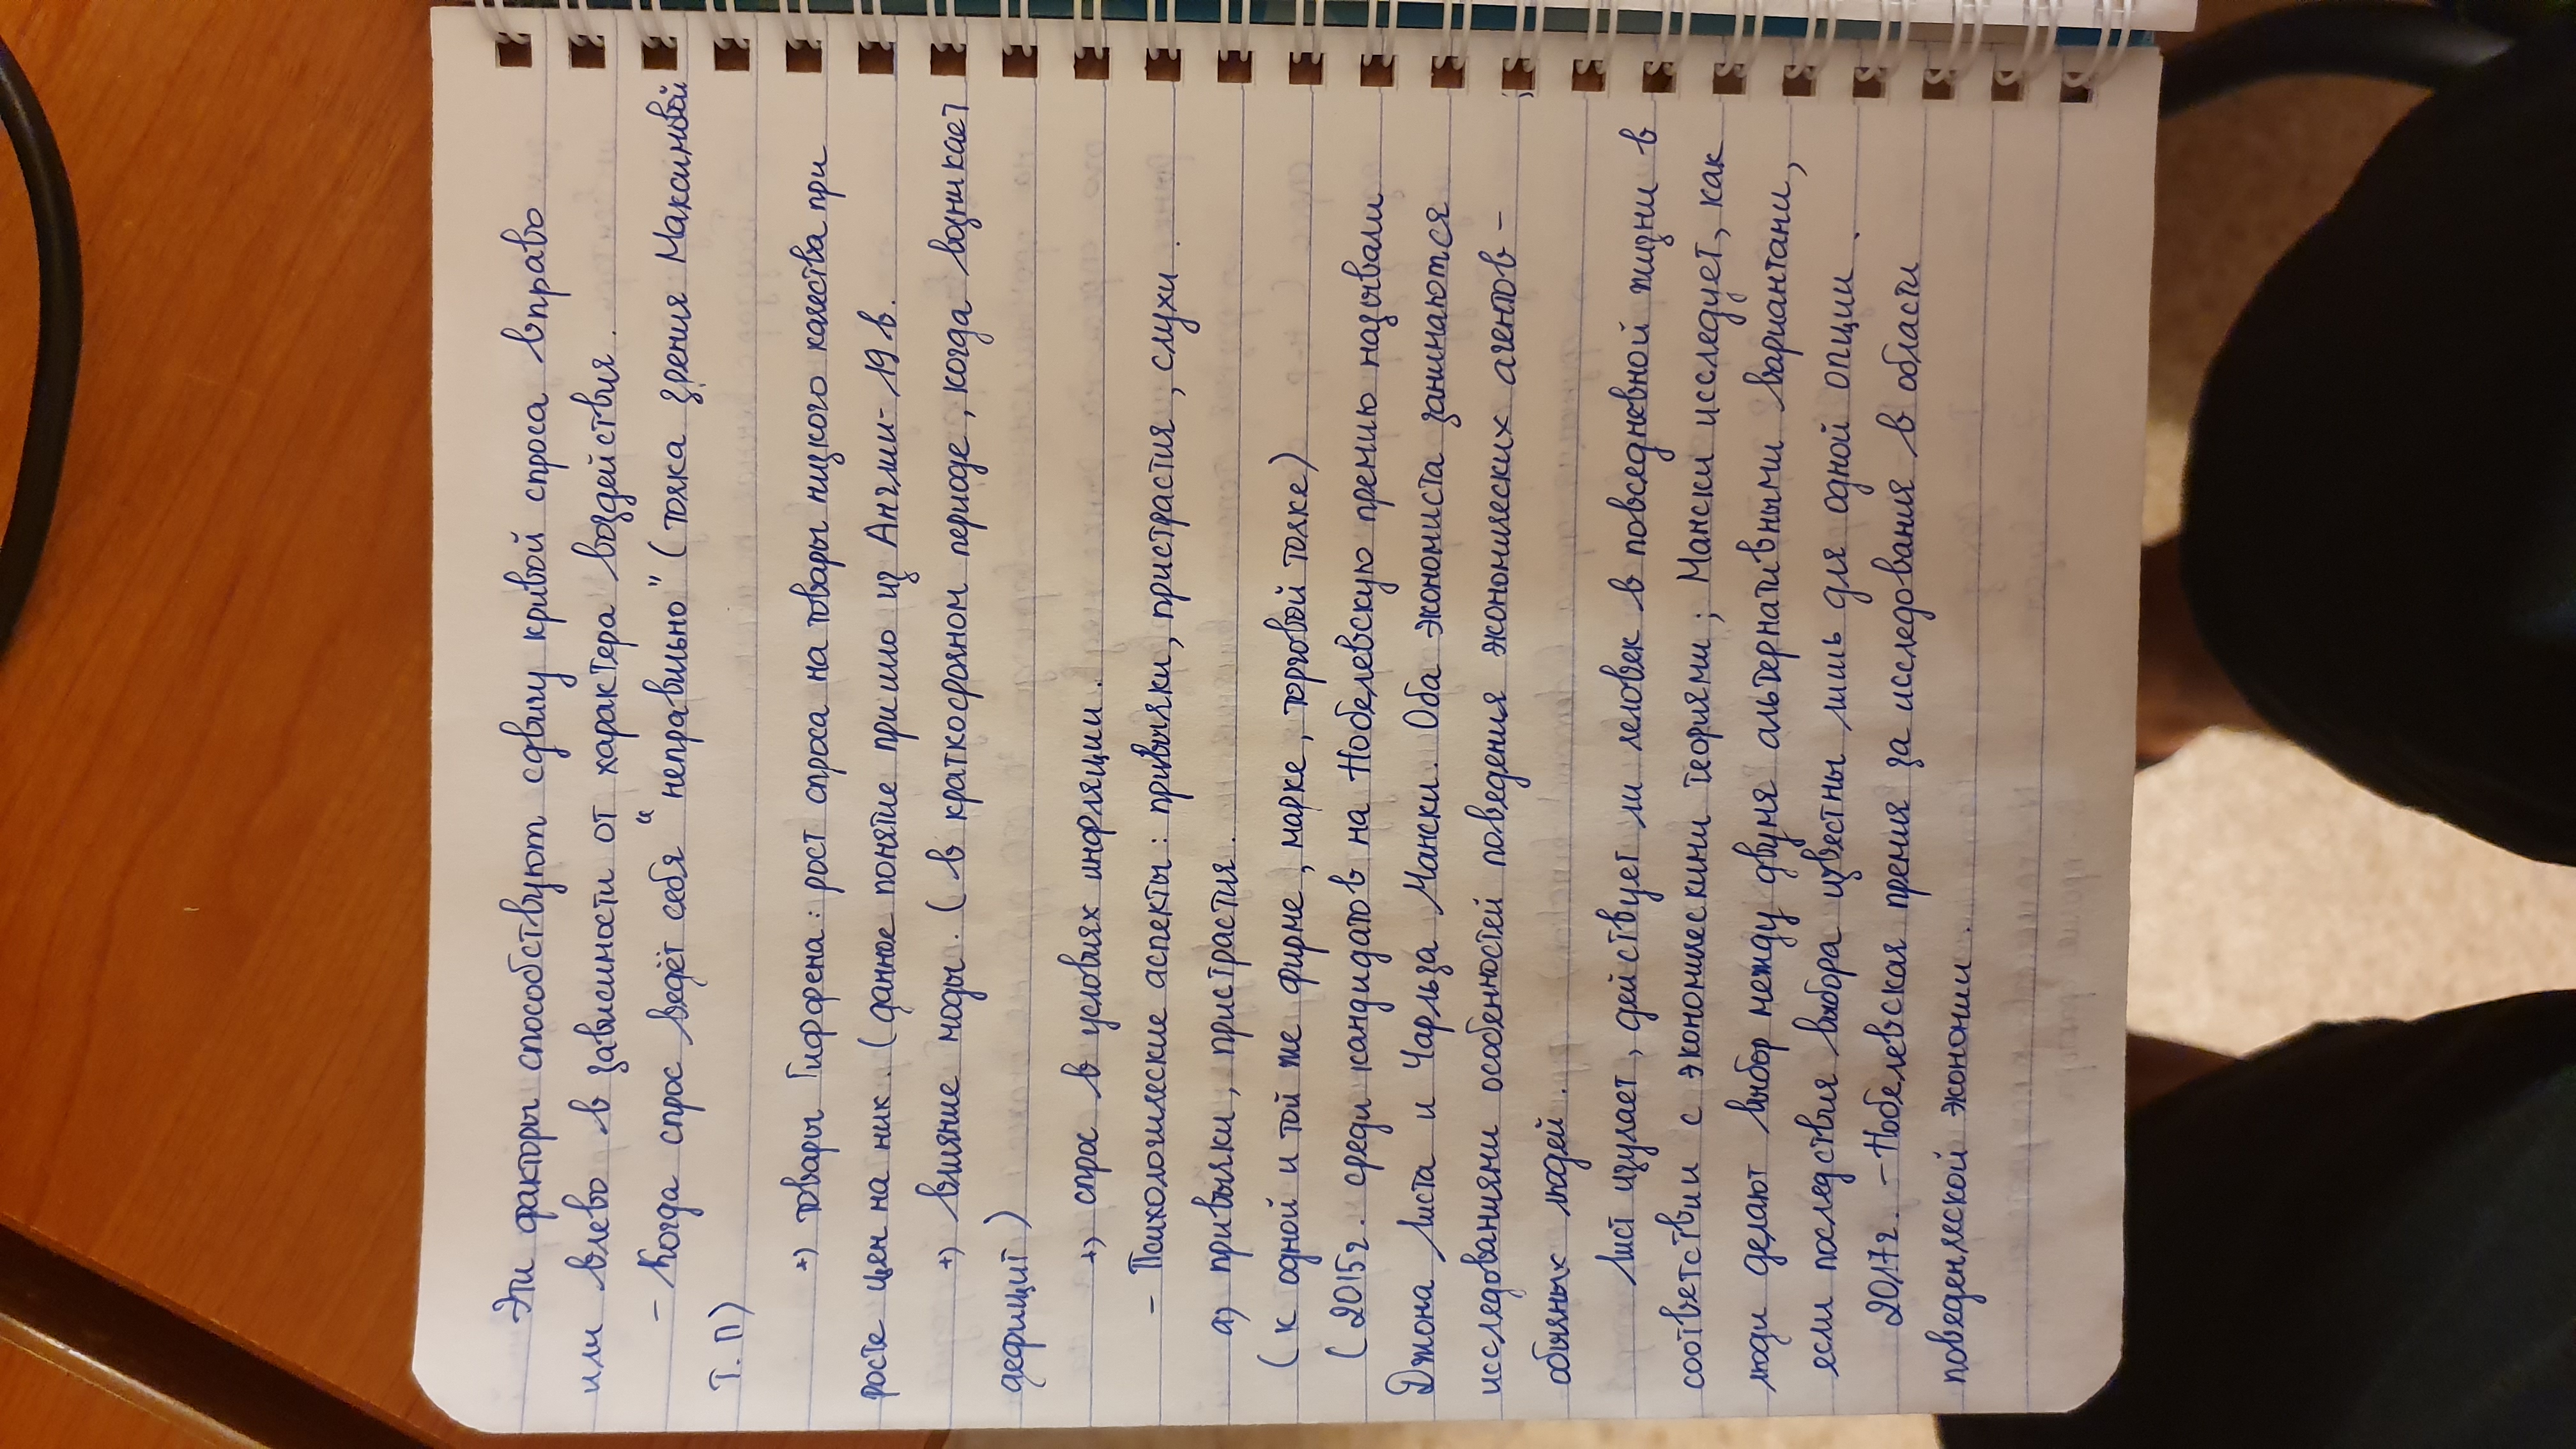 Эти факторы способствуют сдвигу кривой спроса вправо
или влево в зависимости от характера воздействия.
- Когда спрос ведёт себя "неправильно" (точка зрения Максимовой
Т. П)
+) товары Гиффена: рост спроса на товары низкого качества при
росте цен на ник. (данное понятие пришло из Англии - 19 в.
+) влияние моды. (в краткосрочном периоде, когда возникает
дефицит)
+) спрос в условиях инфляции.
- Психологические аспекты: привычки, пристрастия, слухи.
а) привычки, пристрастия.
(к одной и той же фирме, марке, торговой точке)
(2015г. среди кандидатов на Нобелевскую премию называли
Джона Листа и Чарльза Мански. Оба экономиста занимаются
исследованиями особенностей поведения экономических агентов -
обычных людей.
Лист изучает, действует ли человек в повседневной жизни в
соответствии с экономическими теориями; Мански исследует, как
люди делают выбор между двумя альтернативными вариантами,
если последствия выбора известны лишь для одной опции.
2017г. - Нобелевская премия за исследования в области
поведенческой экономии.